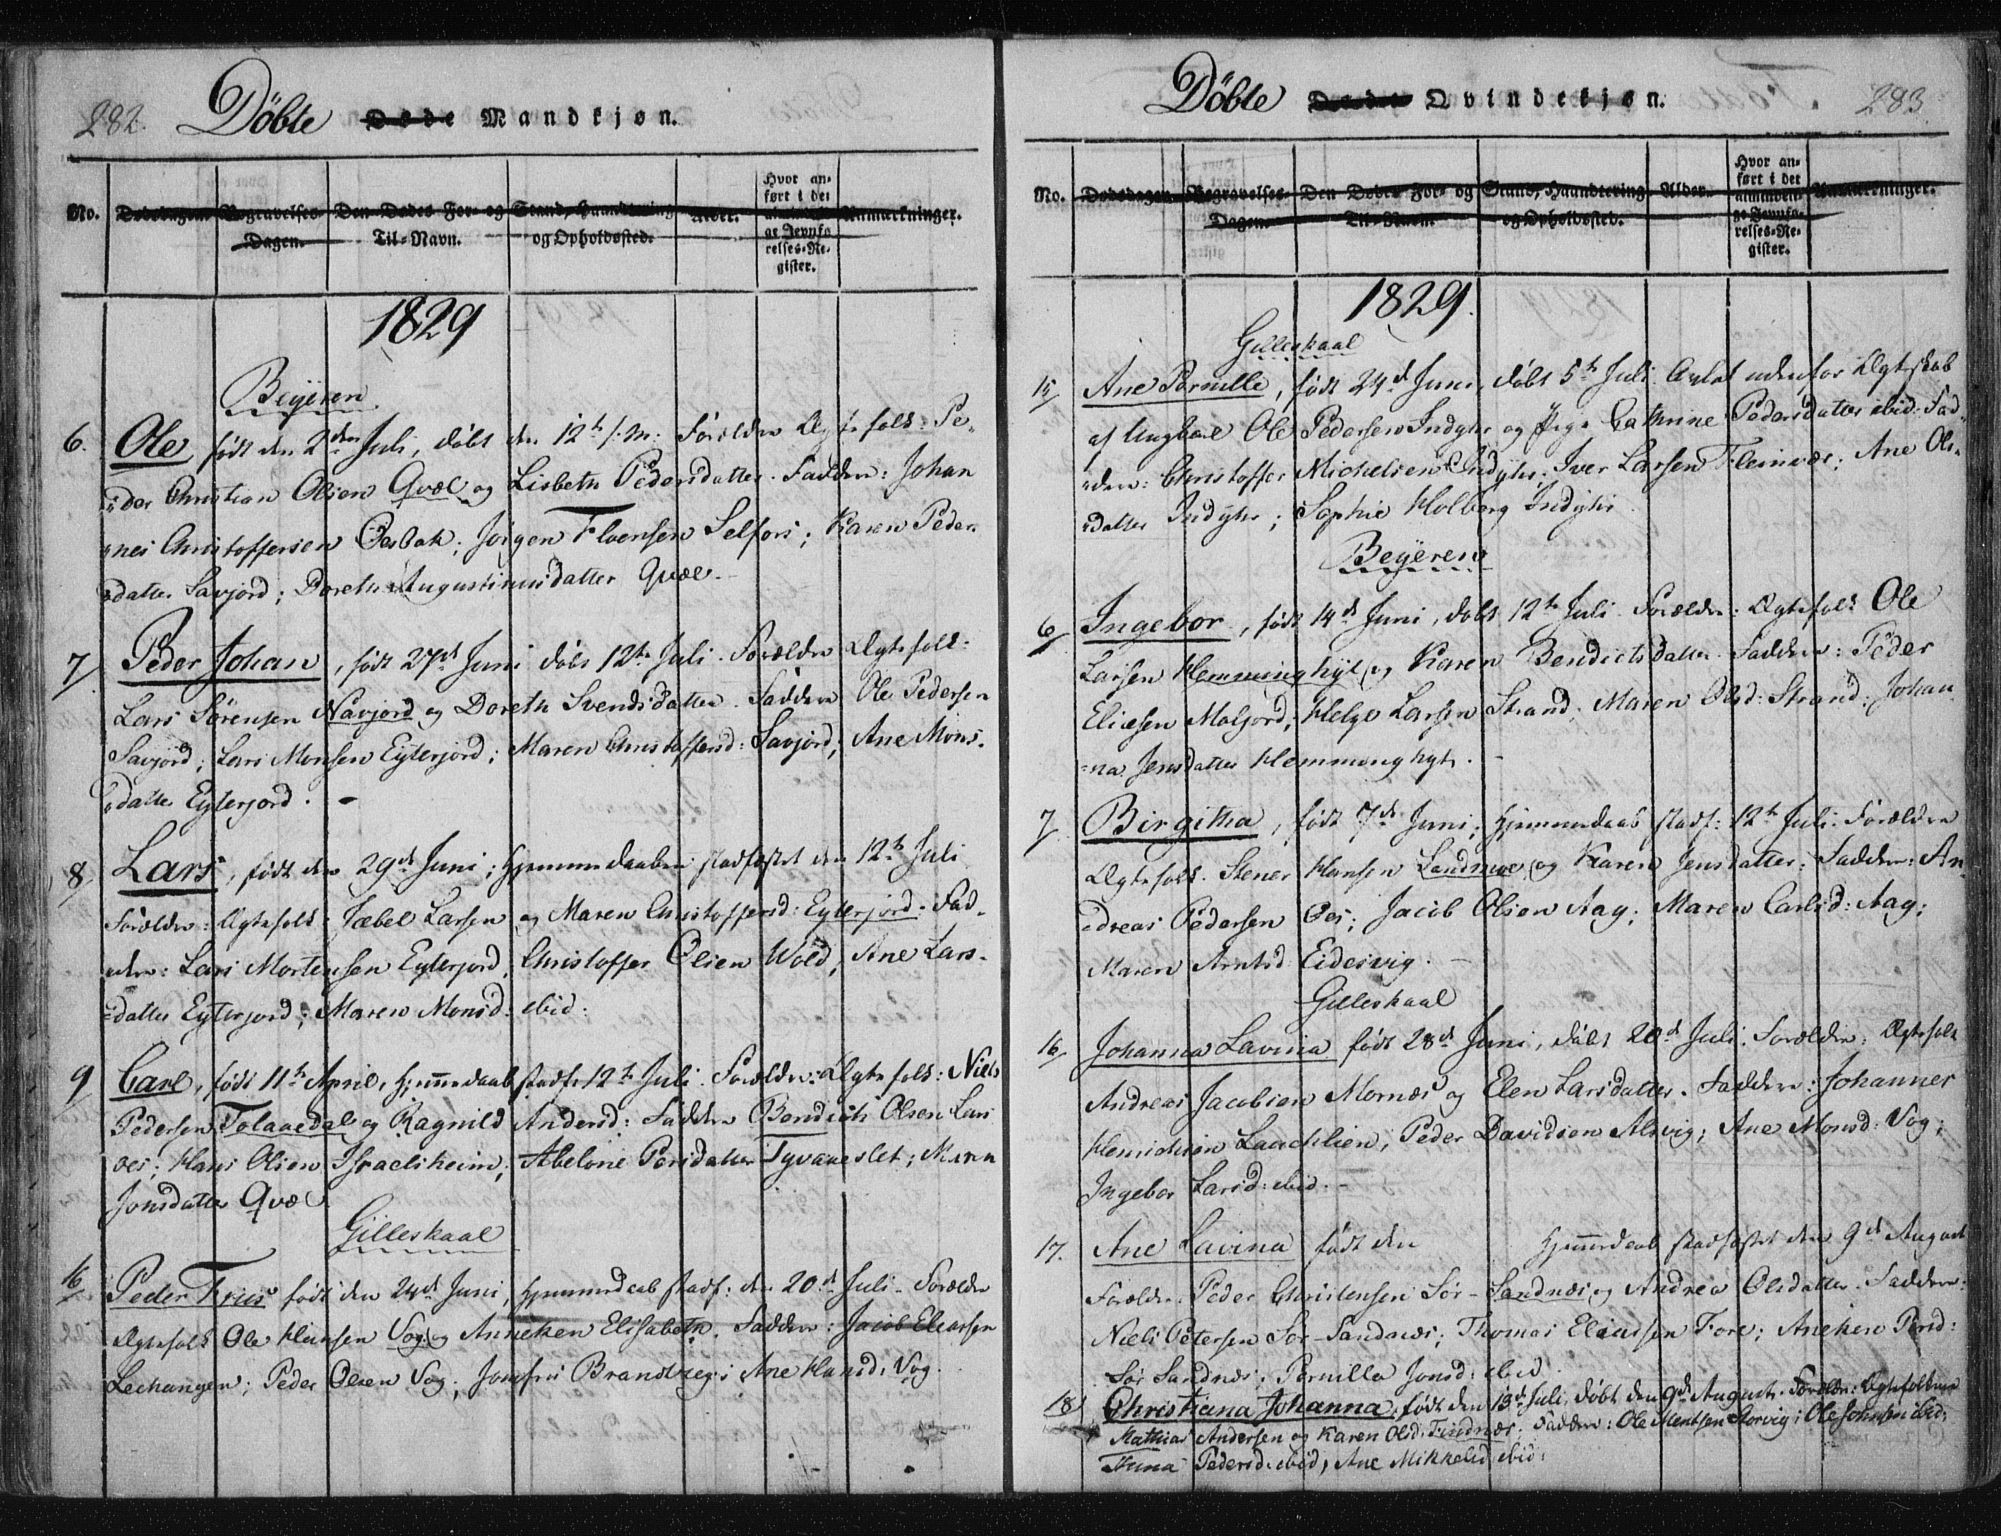 282.
Döbte Døde Mandkjøn.
No. Dødsdagen. Begravelses-Dagen. Den Dødes For- og Til-Navn. Stand, Haandtering og Opholdssted. Alder. Hvor anført i det almindelige Jevnførelses-Register. Anmærkninger.
1829
Beyeren
6. Ole født den 2den Juli, døbt den 12te s. m: Forældre Ægtefolk: Pe-
der Christian Olsen Qvæl og Lisbeth Pedersdatter. Faddere: Johan
nes Christoffersen Osbak; Jørgen Floensen Selfors; Karen Peders
datter Savjord; Doreth Augustinusdatter Qvæl.
7/ Peder Johan, født 27de Juni døbt 12te Juli. Forældre Ægtefolk:
Lars Sörensen Navjord og Doreth Svendsdatter. Faddere Ole Pedersen
Savjord; Lars Monsen Eyterjord; Maren Christoffersd: Savjord; Ane Mons-
datter Eyterjord. -
8/ Lars, født den 29de Juni; hjemmedaaben stadfæstet den 12te Juli
Forældre: Ægtefolk: Jæbel Larsen og Maren Christoffersd: Eyterjord. Fad-
dere: Lars Mortensen Eyterjord, Christoffer Olsen Wold, Ane Lars-
datter Eyterjord; Maren Monsd. ibid:
9/ Carl, født 11te April, hjemmedaab stadf: 12te Juli. Forældre: Ægtefolk: Niels
Pedersen Tolaaedal og Ragnild Andersd: Faddere Bendicts Olsen Lars
oes; Hans Olsen Israelsheim; Abelone Persdatter Tyvaaeslet; Maren
Jonsdatter Qvæl
Gilleskaal
16/ Peder Friis født den 24de Juni, hjemmedaab stadf: den 20de Juli. Forældre
Ægtefolk Ole Hansen Vog og Anneken Elisabeth. Faddere: Jacob Eliassen
Lechangen; Peder Olsen Vog; Jomfru Brandtzeg; Ane Hansd: Vog.
Döbte Qvindekjøn.
283
No. Dødsdagen. Begravelses-Dagen. Den Dødes For- og Til-Navn. Stand, Haandtering og Opholdssted. Alder. Hvor anført i det almindelige Jevnførelses-Register. Anmærkninger.
1829.
Gilleskaal
15/ Ane Pernille, født 24de Juni, døbt 5te Juli. Avlet udenfor Ægteskab
af Ungkarl Ole Pedersen Indyhr og Pige Cathrine Pedersdatter ibid: Fad-
dere: Christoffer Mickelsen Indyhr; Iver Larsen Fleinvær; Ane Ols-
datter Indyhr; Sophie Holberg Indyhr.
Beyeren
6/ Ingebor, født 14de Juni, døbt 12te Juli. Forældre: Ægtefolk Ole
Larsen Hemminghyt og Karen Bendictsdatter. Faddere: Peder
Eliesen Moljord; Helge Larsen Strand; Maren Olsd: Strand; Johan
na Jensdatter Hemminghyt. -
7/ Birgitha, født 7de Juni; hjemmedaab stadf: 12te Juli. Forældre
Ægtefolk. Stener Hansen Landmoe og Karen Jensdatter: Faddere: An
dreas Pedersen Oes; Jacob Olsen Aag; Maren Carlsd: Aag;
Maren Arntsd Eidesvig. -
Gilleskaal
16/ Johanna Lavina født 28de Juni, døbt 20de Juli. Forældre, Ægtefolk
Andreas Jacobsen Mornæs og Elen Larsdatter. Faddere: Johannes
Henrichsen Laachlien, Peder Davidsen Alsvig; Ane Monsd: Vog;
Ingebor Larsd: ibid. -
17. Ane Lavina født den hjemmedaab stadfæstet den 9de August
Forældre. Peder Christensen Sör-Sandnæs og Andrea Olsdatter. Faddere:
Niels Petersen Sör-Sandnæs; Thomas Eliassen Fore; Aneken Persd:
Sör Sandnæs; Pernilla Jonsd: ibid
18/ Christiana Johanna, født den 13de Juli, døbt den 9de August. Forældre: Ægtefolkene
Mathias Andersen og Karen Olsd: Findnæs; Faddere: Ole Mentsen Storvig; Ole Johnsen ibid;
Anna Pedersd: ibid; Ane Mikkelsd ibid: